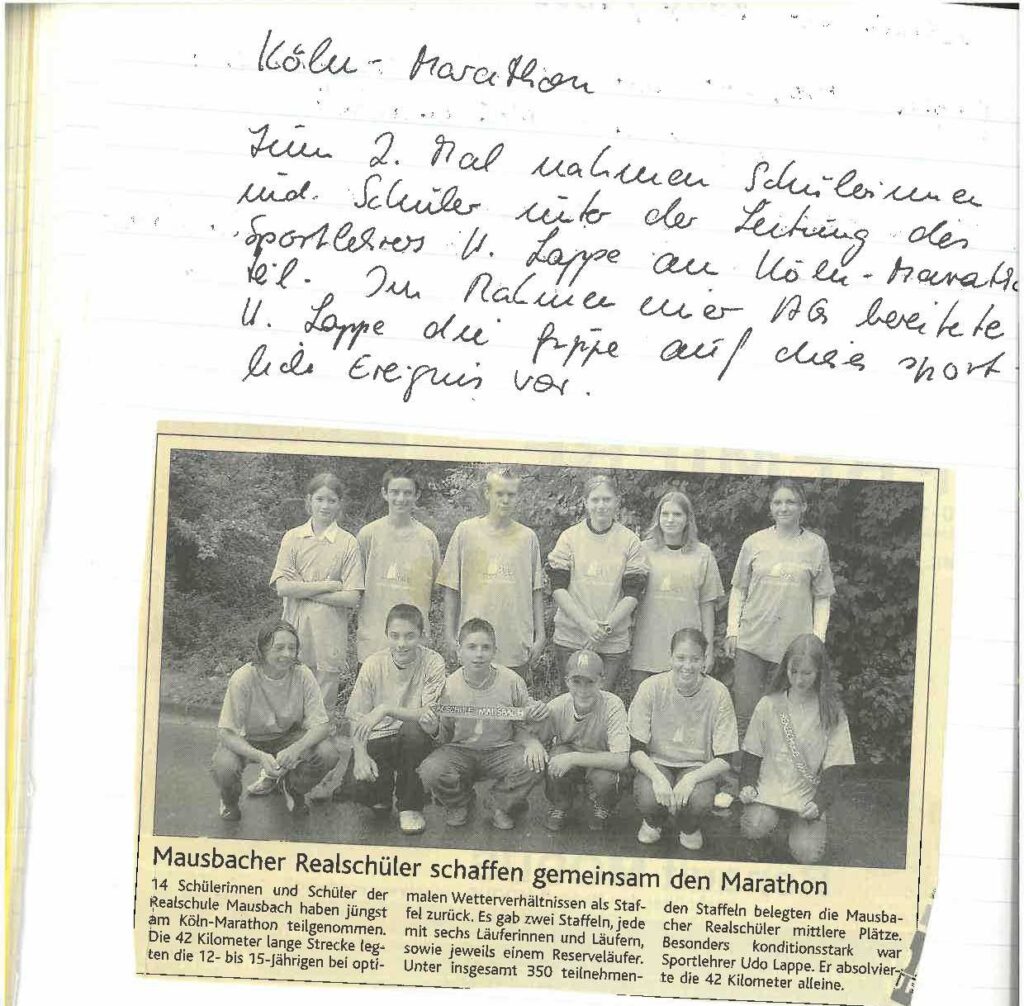 Köln - Marathon
Zum 2. Mal nahmen Schülerinnen
und Schüler unter der Leitung des
Sportlehrers U. Lappe am Köln-Marath
teil. Im Rahmen einer AG bereitete
U. Lappe die Gruppe auf dieses sport-
liche Ereignis vor.
ALSCHULE MAUSBACH
Mausbacher Realschüler schaffen gemeinsam den Marathon
14 Schülerinnen und Schüler der
Realschule Mausbach haben jüngst
am Köln-Marathon teilgenommen.
Die 42 Kilometer lange Strecke leg-
ten die 12- bis 15-Jährigen bei opti-
malen Wetterverhältnissen als Staf-
fel zurück. Es gab zwei Staffeln, jede
mit sechs Läuferinnen und Läufern,
sowie jeweils einem Reserveläufer.
Unter insgesamt 350 teilnehmen-
den Staffeln belegten die Mausba-
cher Realschüler mittlere Plätze.
Besonders konditionsstark war
Sportlehrer Udo Lappe. Er absolvier-
te die 42 Kilometer alleine.